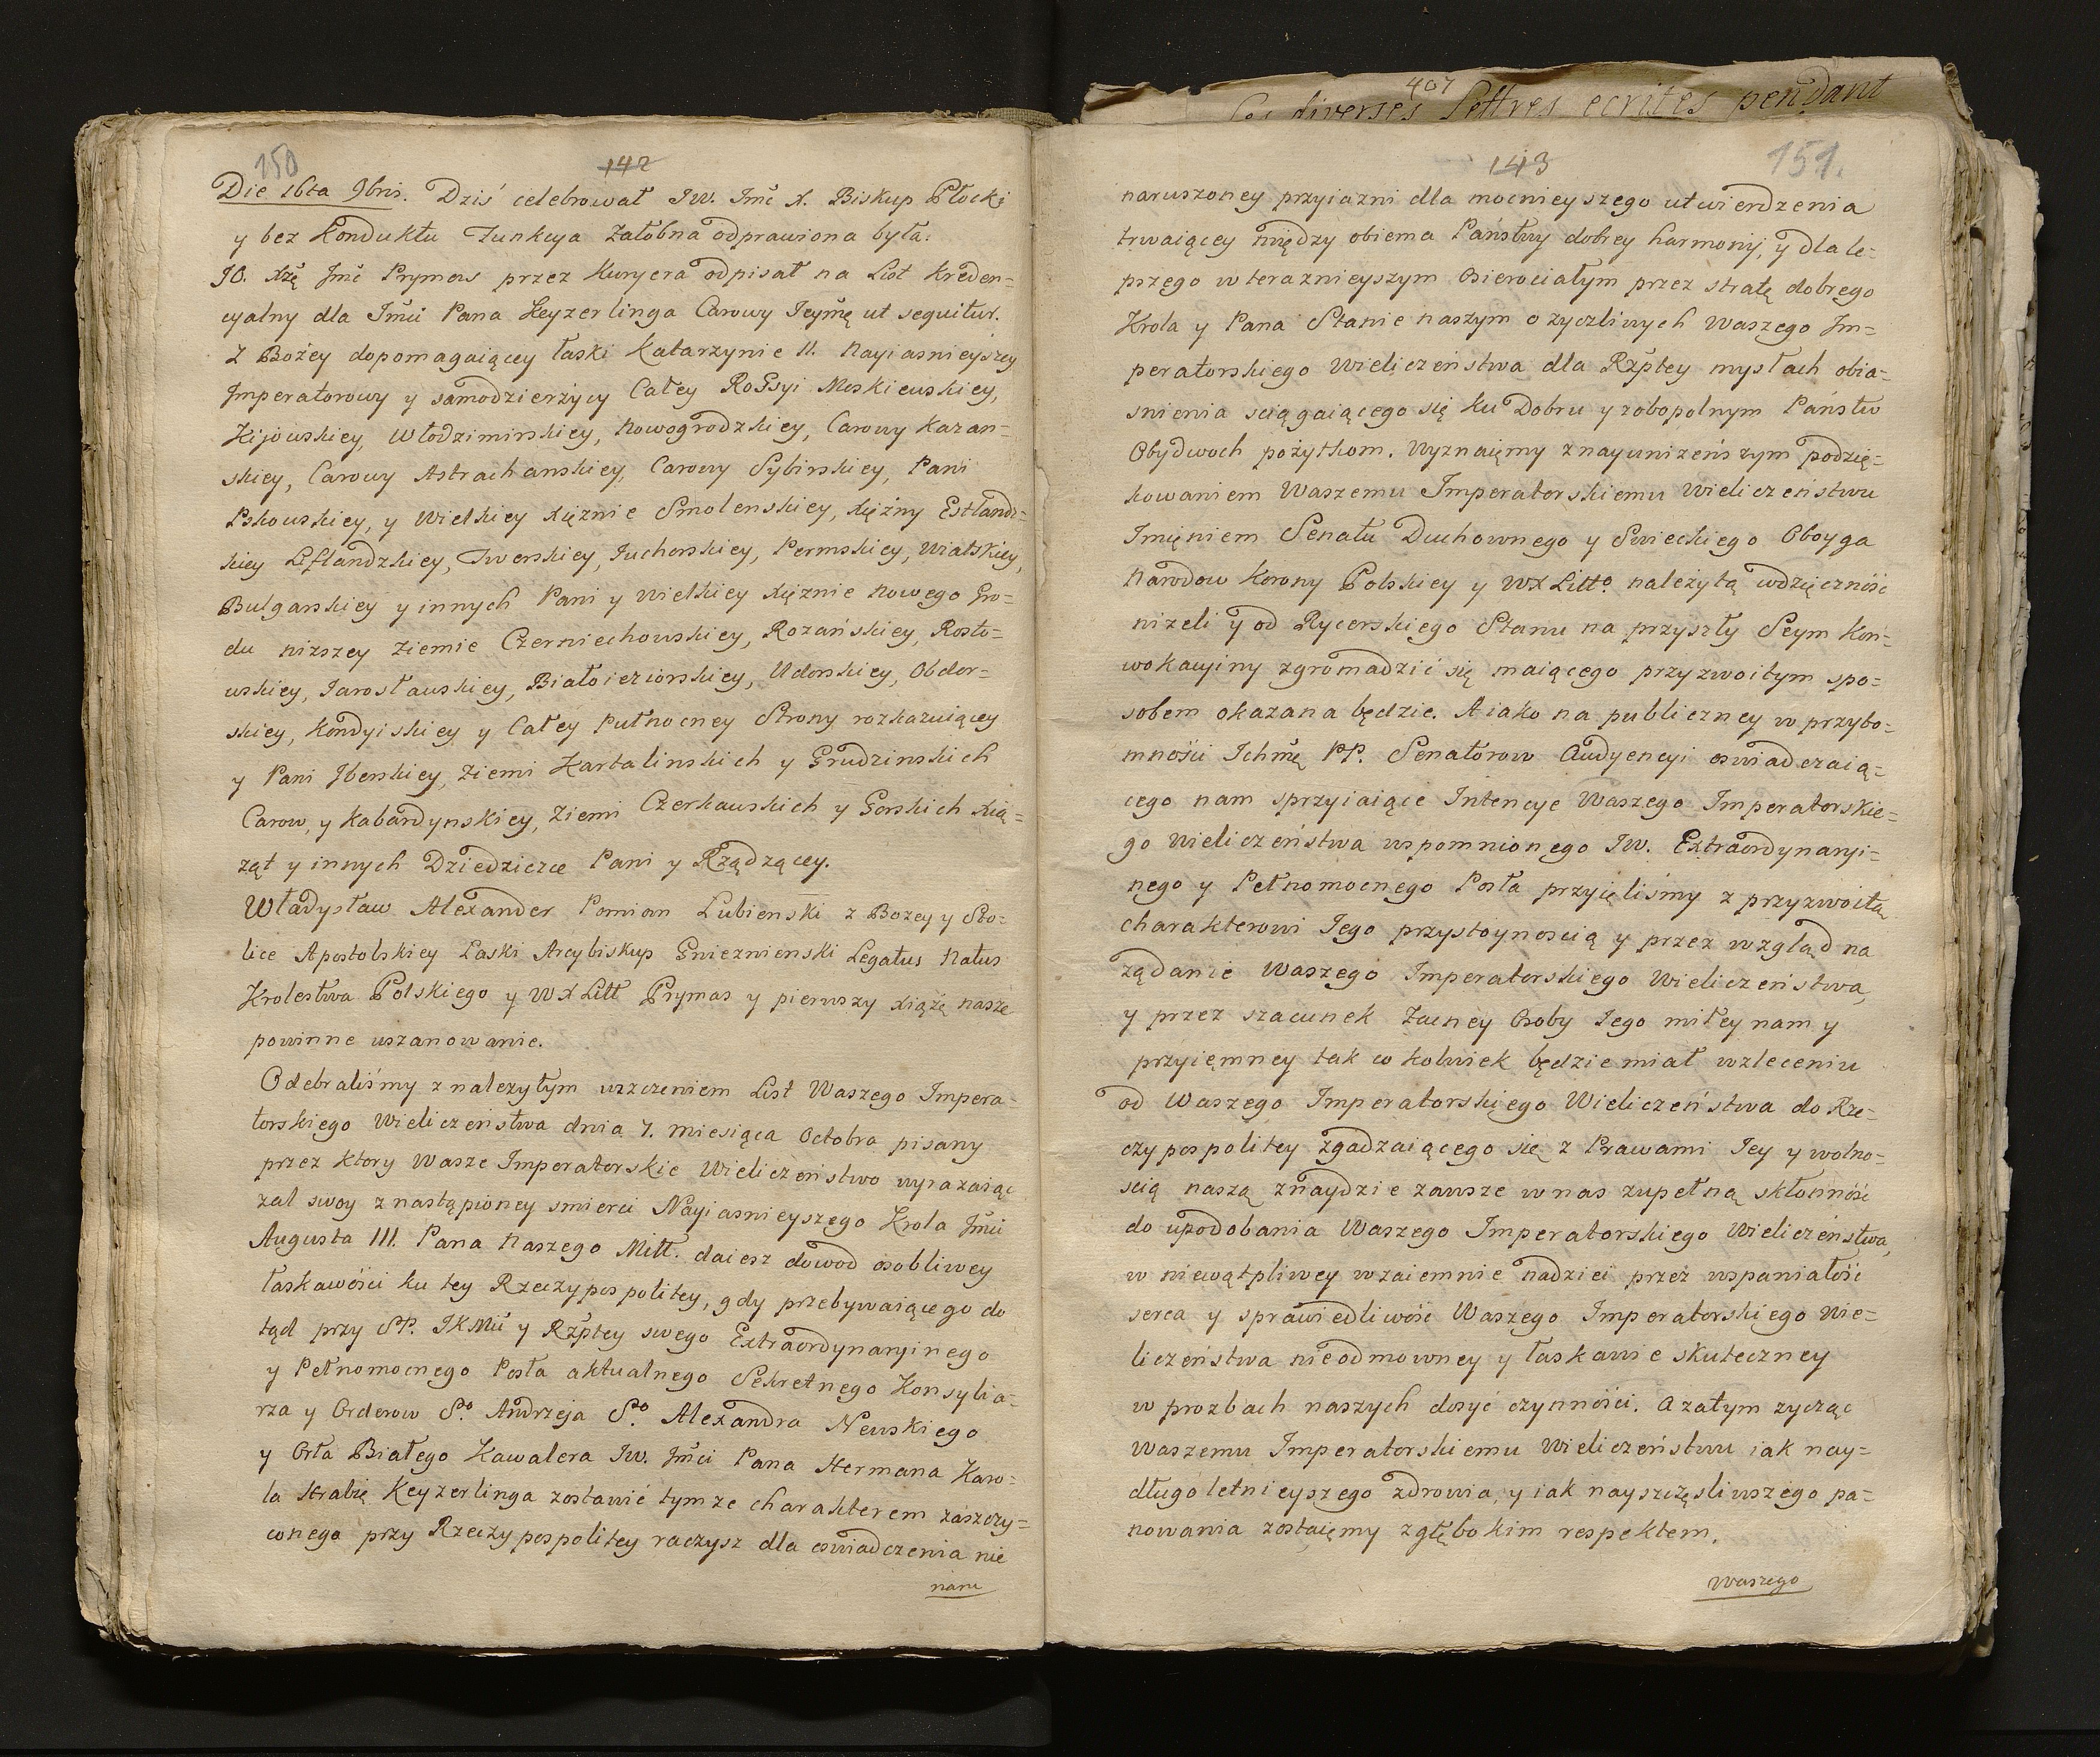 150
142
Die 16ta 9bris. Dziś celebrował Jw. Jmć X. Biskup Płocki
y bez Konduktu Funkcya Załobna odprawiona była.
JO. Xżę Jmć Prymas przez Kuryera odpisał na List Kreden=
cyalny dla Jmći Pana Keyzerlinga Carowy Jeymę ut sequitur.
Z Bożey dopomagaiącey łaski Katarzynie II. Nayiasnieyszey
Jmperatorowy y samodzierżycy Całey Rossyi Moskiewskiey,
Kijowskiey, Włodzimirskiey, Nowogrodzkiey, Carowy Kazan=
skiey, Carowy Astrachanskiey, Carowy Sybirskiey, Pani
Pskowskiey, y Wielkiey Xiężnie Smolenskiey, Xiężny Estlandz=
kiey Leflandzkiey, Twerskiey, Juchorskiey, Permskiey, Wiatskiey,
Bulgarskiey y innych Pani y Wielkiey Xiężnie Nowego Gro=
du nizszey Ziemie Czerniechowskiey, Rozańskiey, Rosto=
wskiey, Jarosławskiey, Białoieziorskiey, Udorskiey, Obdor=
skiey, Kondyiskiey y Całey Pułnocney Strony rozkazuiącey
y Pani Jberskiey, Ziemi Kartalinskich y Grudzinskich
Carow, y Kabardynskiey, Ziemi Czerkauskich y Gorskich Xią=
żąt y innych Dziedzicze Pani y Rządzącey.
Władysław Alexander Pomian Lubienski z Bożey y Sto=
lice Apostolskiey Łaski Arcybiskup Gnieznienski Legatus Natus
Krolestwa Polskiego y WXLitt Prymas y pierwszy Xiążę nasze
powinne uszanowanie.
Odebraliśmy z należytym uszczeniem List Waszego Jmpera=
torskiego Wieliczeństwa dnia 7. miesiąca Octobra pisany
przez ktory Wasze Jmperatorskie Wieliczeństwo wyrazaiąc
zal swoy z nastąpioney smierci Nayiasnieyszego Krola Jmći
Augusta III. Pana Naszego Miłł. daiesz dowod osobliwey
łaskawości ku tey Rzeczypospolitey, gdy przebywaiącego do
tąd przy SP. JKMći y Rzptey swego Extraordynaryinego
y Pełnomocnego Posła aktualnego Sekretnego Konsylia=
rza y Orderow So. Andrzeja So. Alexandra Newskiego
y Orła Białego Kawalera Jw. Jmći Pana Hermana Karo=
la Hrabię Keyzerlinga zostawić tymze charakterem zaszczy=
conego przy Rzeczypospolitey raczysz dla oswiadczenia nie
naru
407
diverses Lettres ecrites pendant
143
151.
naruszoney przyiazni dla mocnieyszego utwierdzenia
trwaiącey między obiema Państwy dobrey harmonij, y dla le=
pszego w teraznieyszym Osierociałym przez stratę dobrego
Krola y Pana Stanie naszym o zyczliwych Waszego Jm=
peratorskiego Wieliczeństwa dla Rzptey mysłach obia=
snienia sciągaiącego się ku Dobru y zobopolnym Państw
Obydwoch pożytkom. Wyznaięmy z nayunizeńszym podzię=
kowaniem Waszemu Jmperatorskiemu Wieliczeństwu
Jmięniem Senatu Duchownego y Swieckiego Oboyga
Narodow Korony Polskiey y WXLitto. należytą wdzięczność
nizeli y od Rycerskiego Stanu na przyszły Seym Kon=
wokacyiny zgromadzić się maiącego przyzwoitym spo=
sobem okazana będzie. A iako na publiczney w przyto=
mności Jchmę PP. Senatorow Audyencyi oswiadczaią=
cego nam sprzyiaiące Jntencye Waszego Jmperatorskie=
go Wieliczeństwa wspomnionego Jw. Extraordynaryi=
nego y Pełnomocnego Posła przyięliśmy z przyzwoitą
charakterowi Jego przystoynoscią y przez wzgląd na
żądanie Waszego Jmperatorskiego Wieliczeństwa,
y przez szacunek Zacney Osoby Jego miłey nam y
przyięmney tak co kolwiek będzie miał w zleceniu
od Waszego Jmperatorskiego Wieliczeństwa do Rze=
czypospolitey zgadzaiącego się z Prawami Jey y wolno=
scią naszą znaydzie zawsze w nas zupełną skłonność
do upodobania Waszego Jmperatorskiego Wieliczeństwa,
w niewątpliwey wzaiemnie nadziei przez wspaniałość
serca y sprawiedliwość Waszego Jmperatorskiego Wie=
liczeństwa nieodmowney y łaskawie skuteczney
w prozbach naszych dosyć czynności. A zatym zycząc
Waszemu Jmperatorskiemu Wieliczeństwu iak nay=
długoletnieyszego zdrowia, y iak nayszczęsliwszego pa=
nowania zostaięmy z głębokim respektem.
Waszego